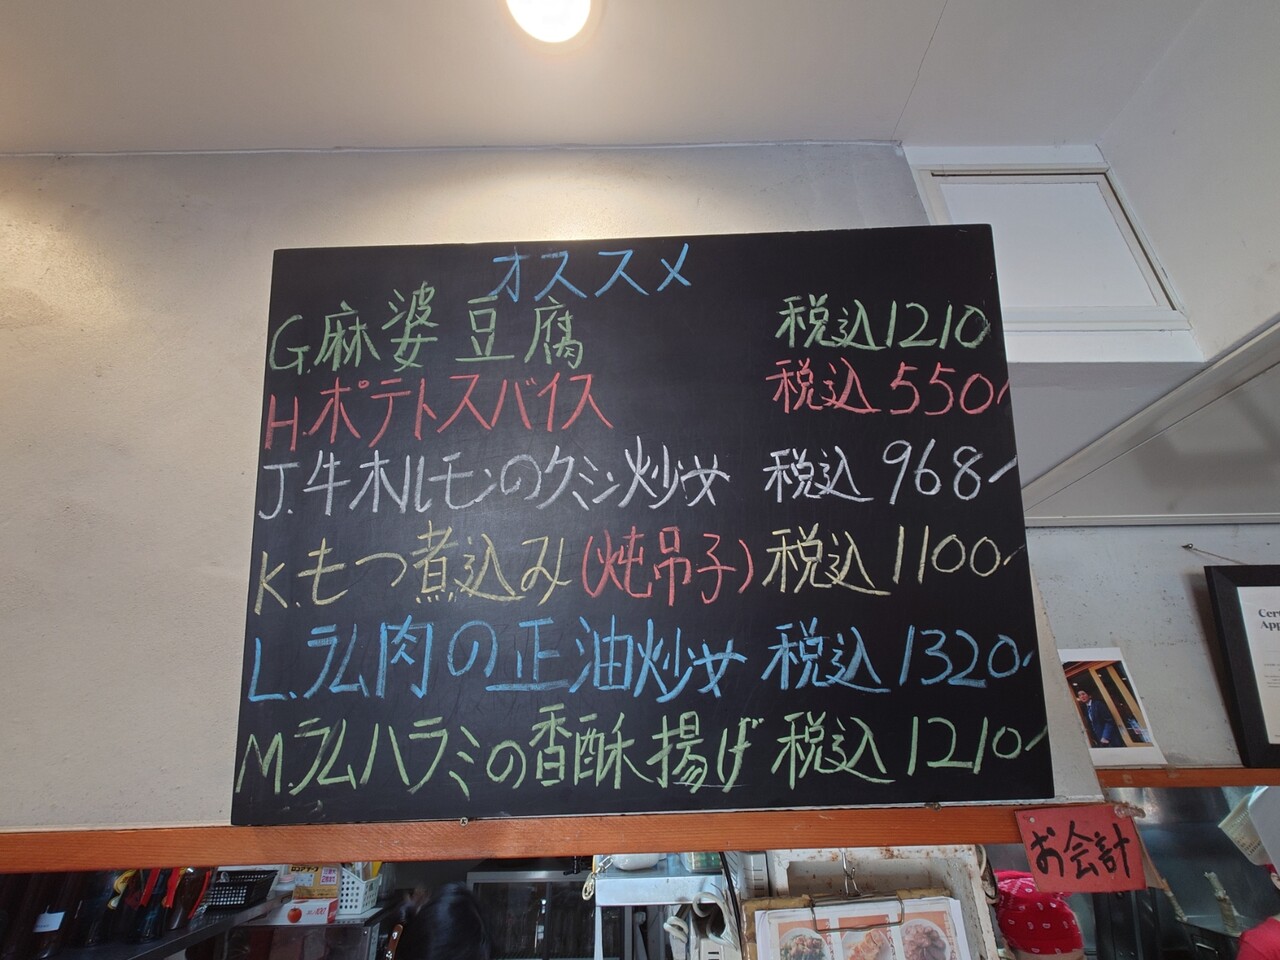 オススメ
G.麻婆豆腐 税込1210
H.ポテトスパイス 税込550
J.牛ホルモンのクミン炒め 税込968
K.もつ煮込み(炖吊子) 税込1100
L.ラム肉の正油炒め 税込1320
M.ラムハラミの香酥揚げ 税込1210
お会計